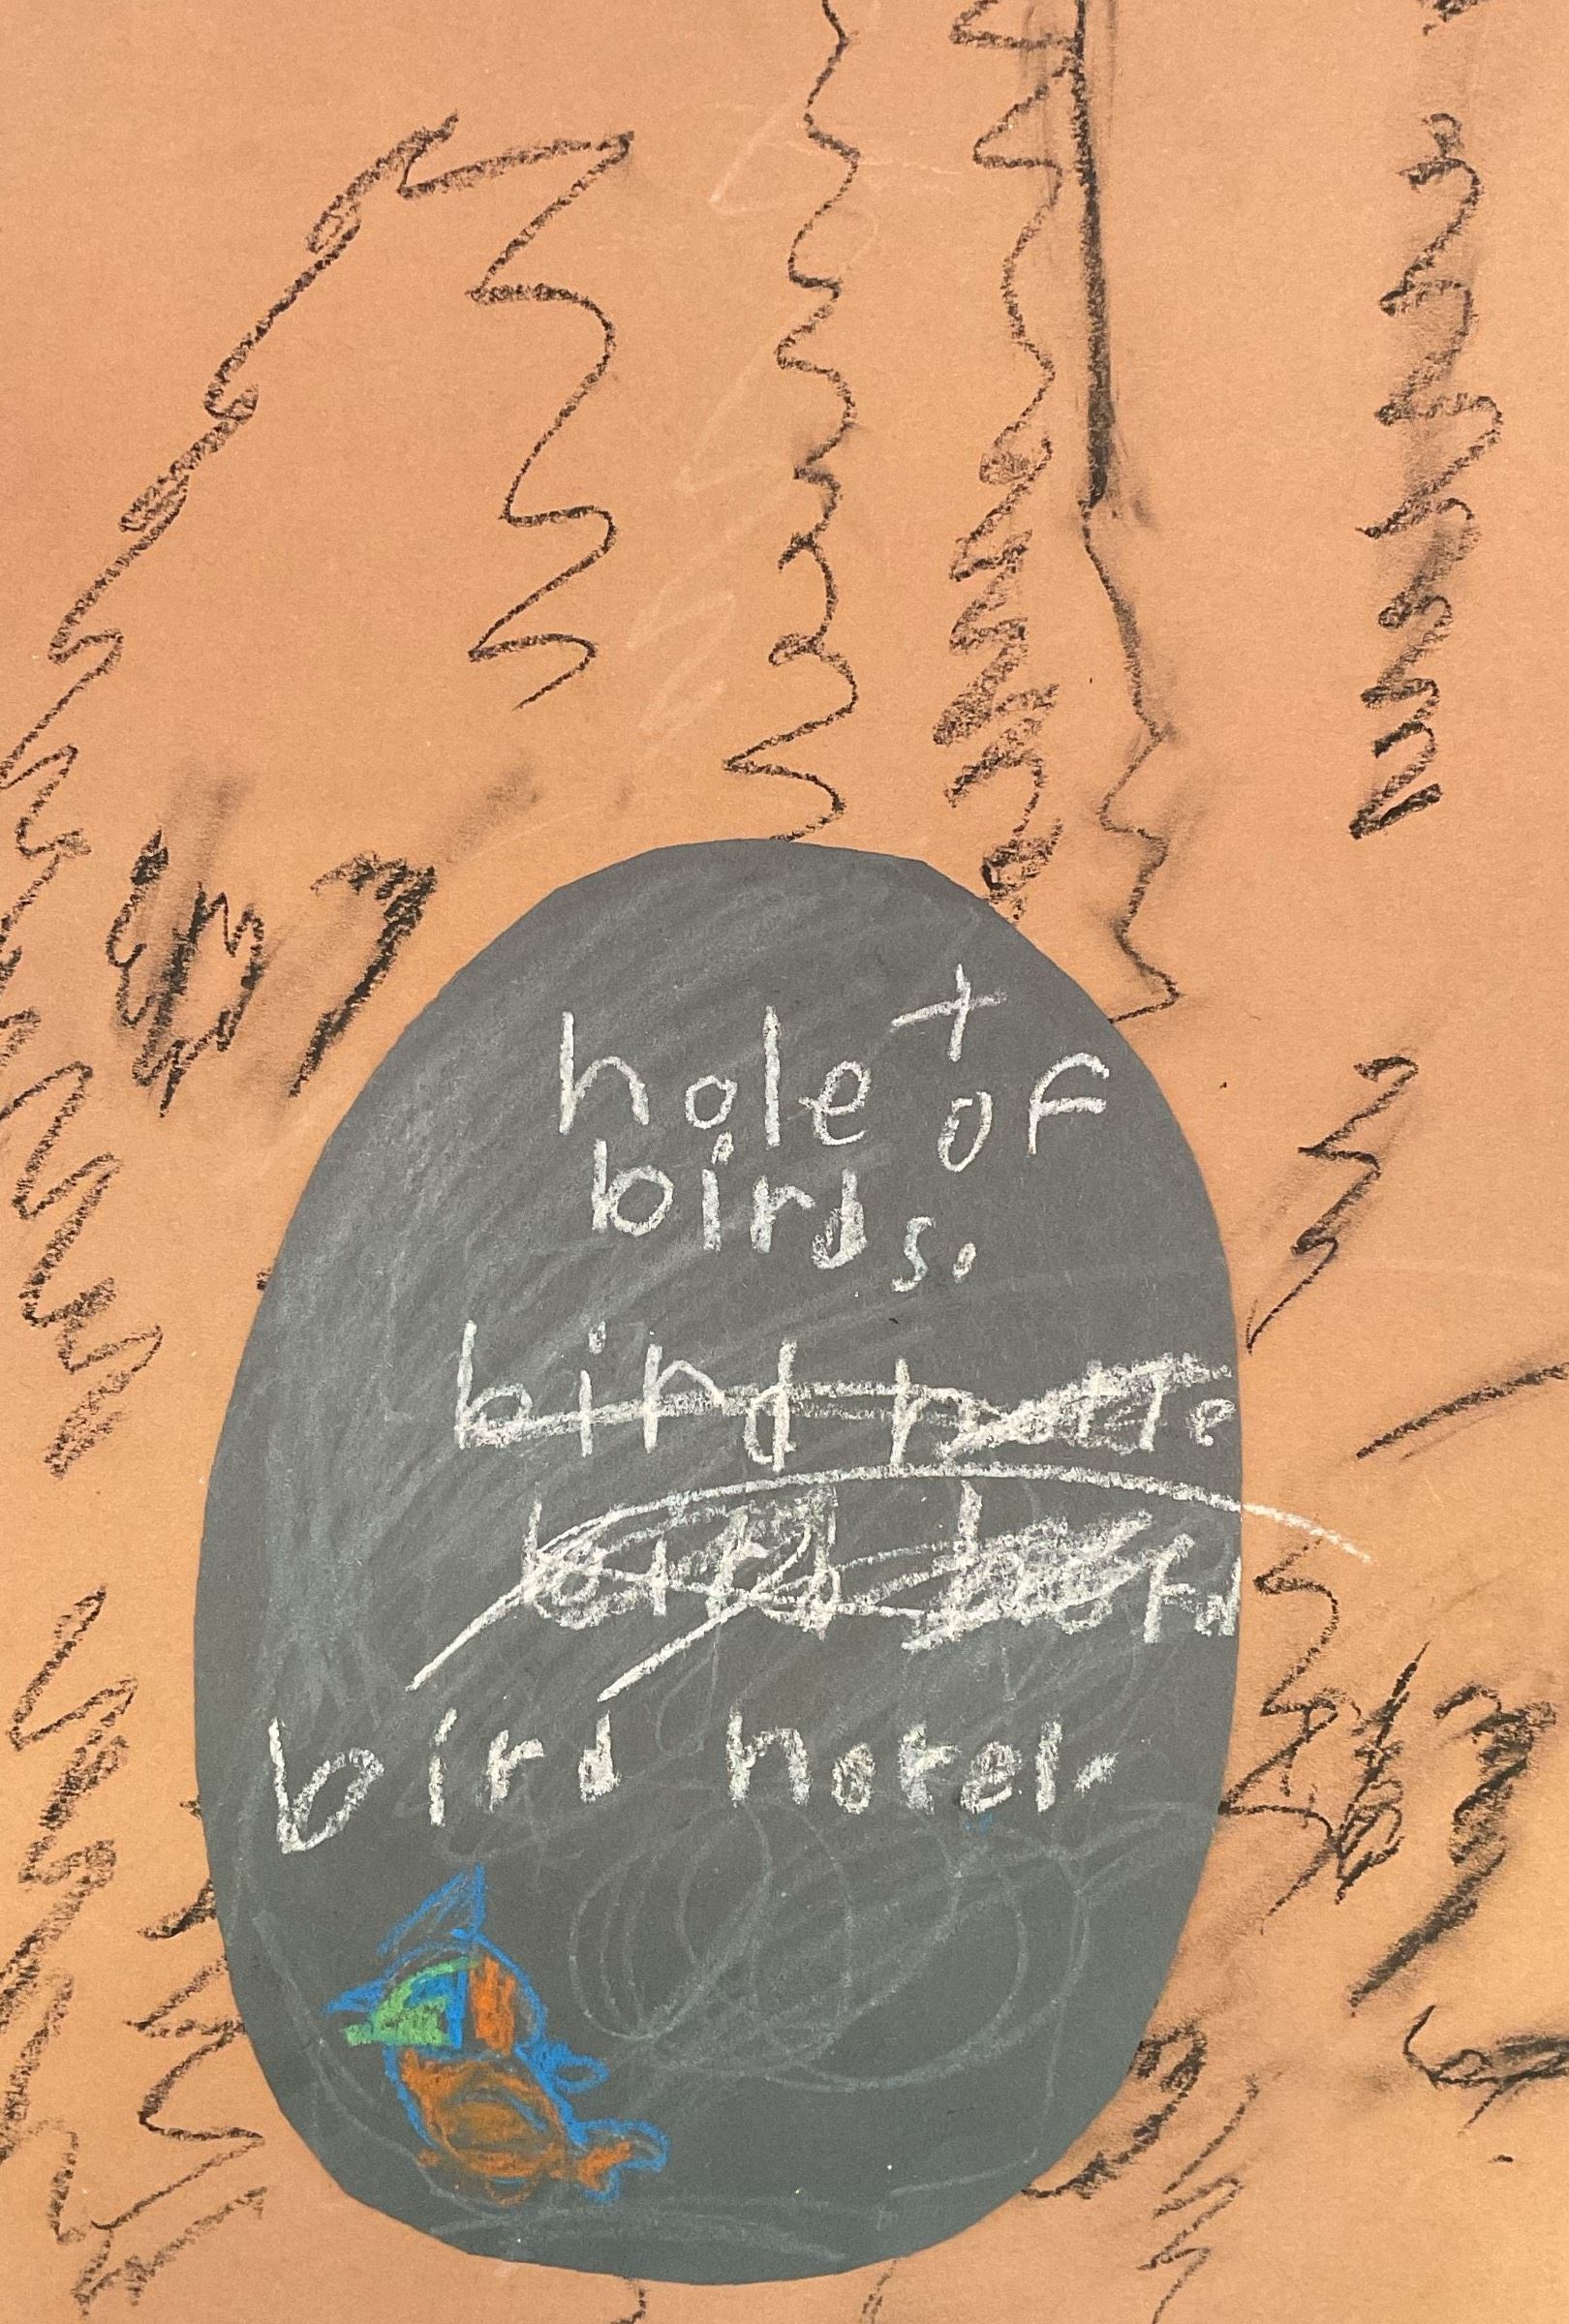 hole + of
birds.
bird hotle
bird hotel.